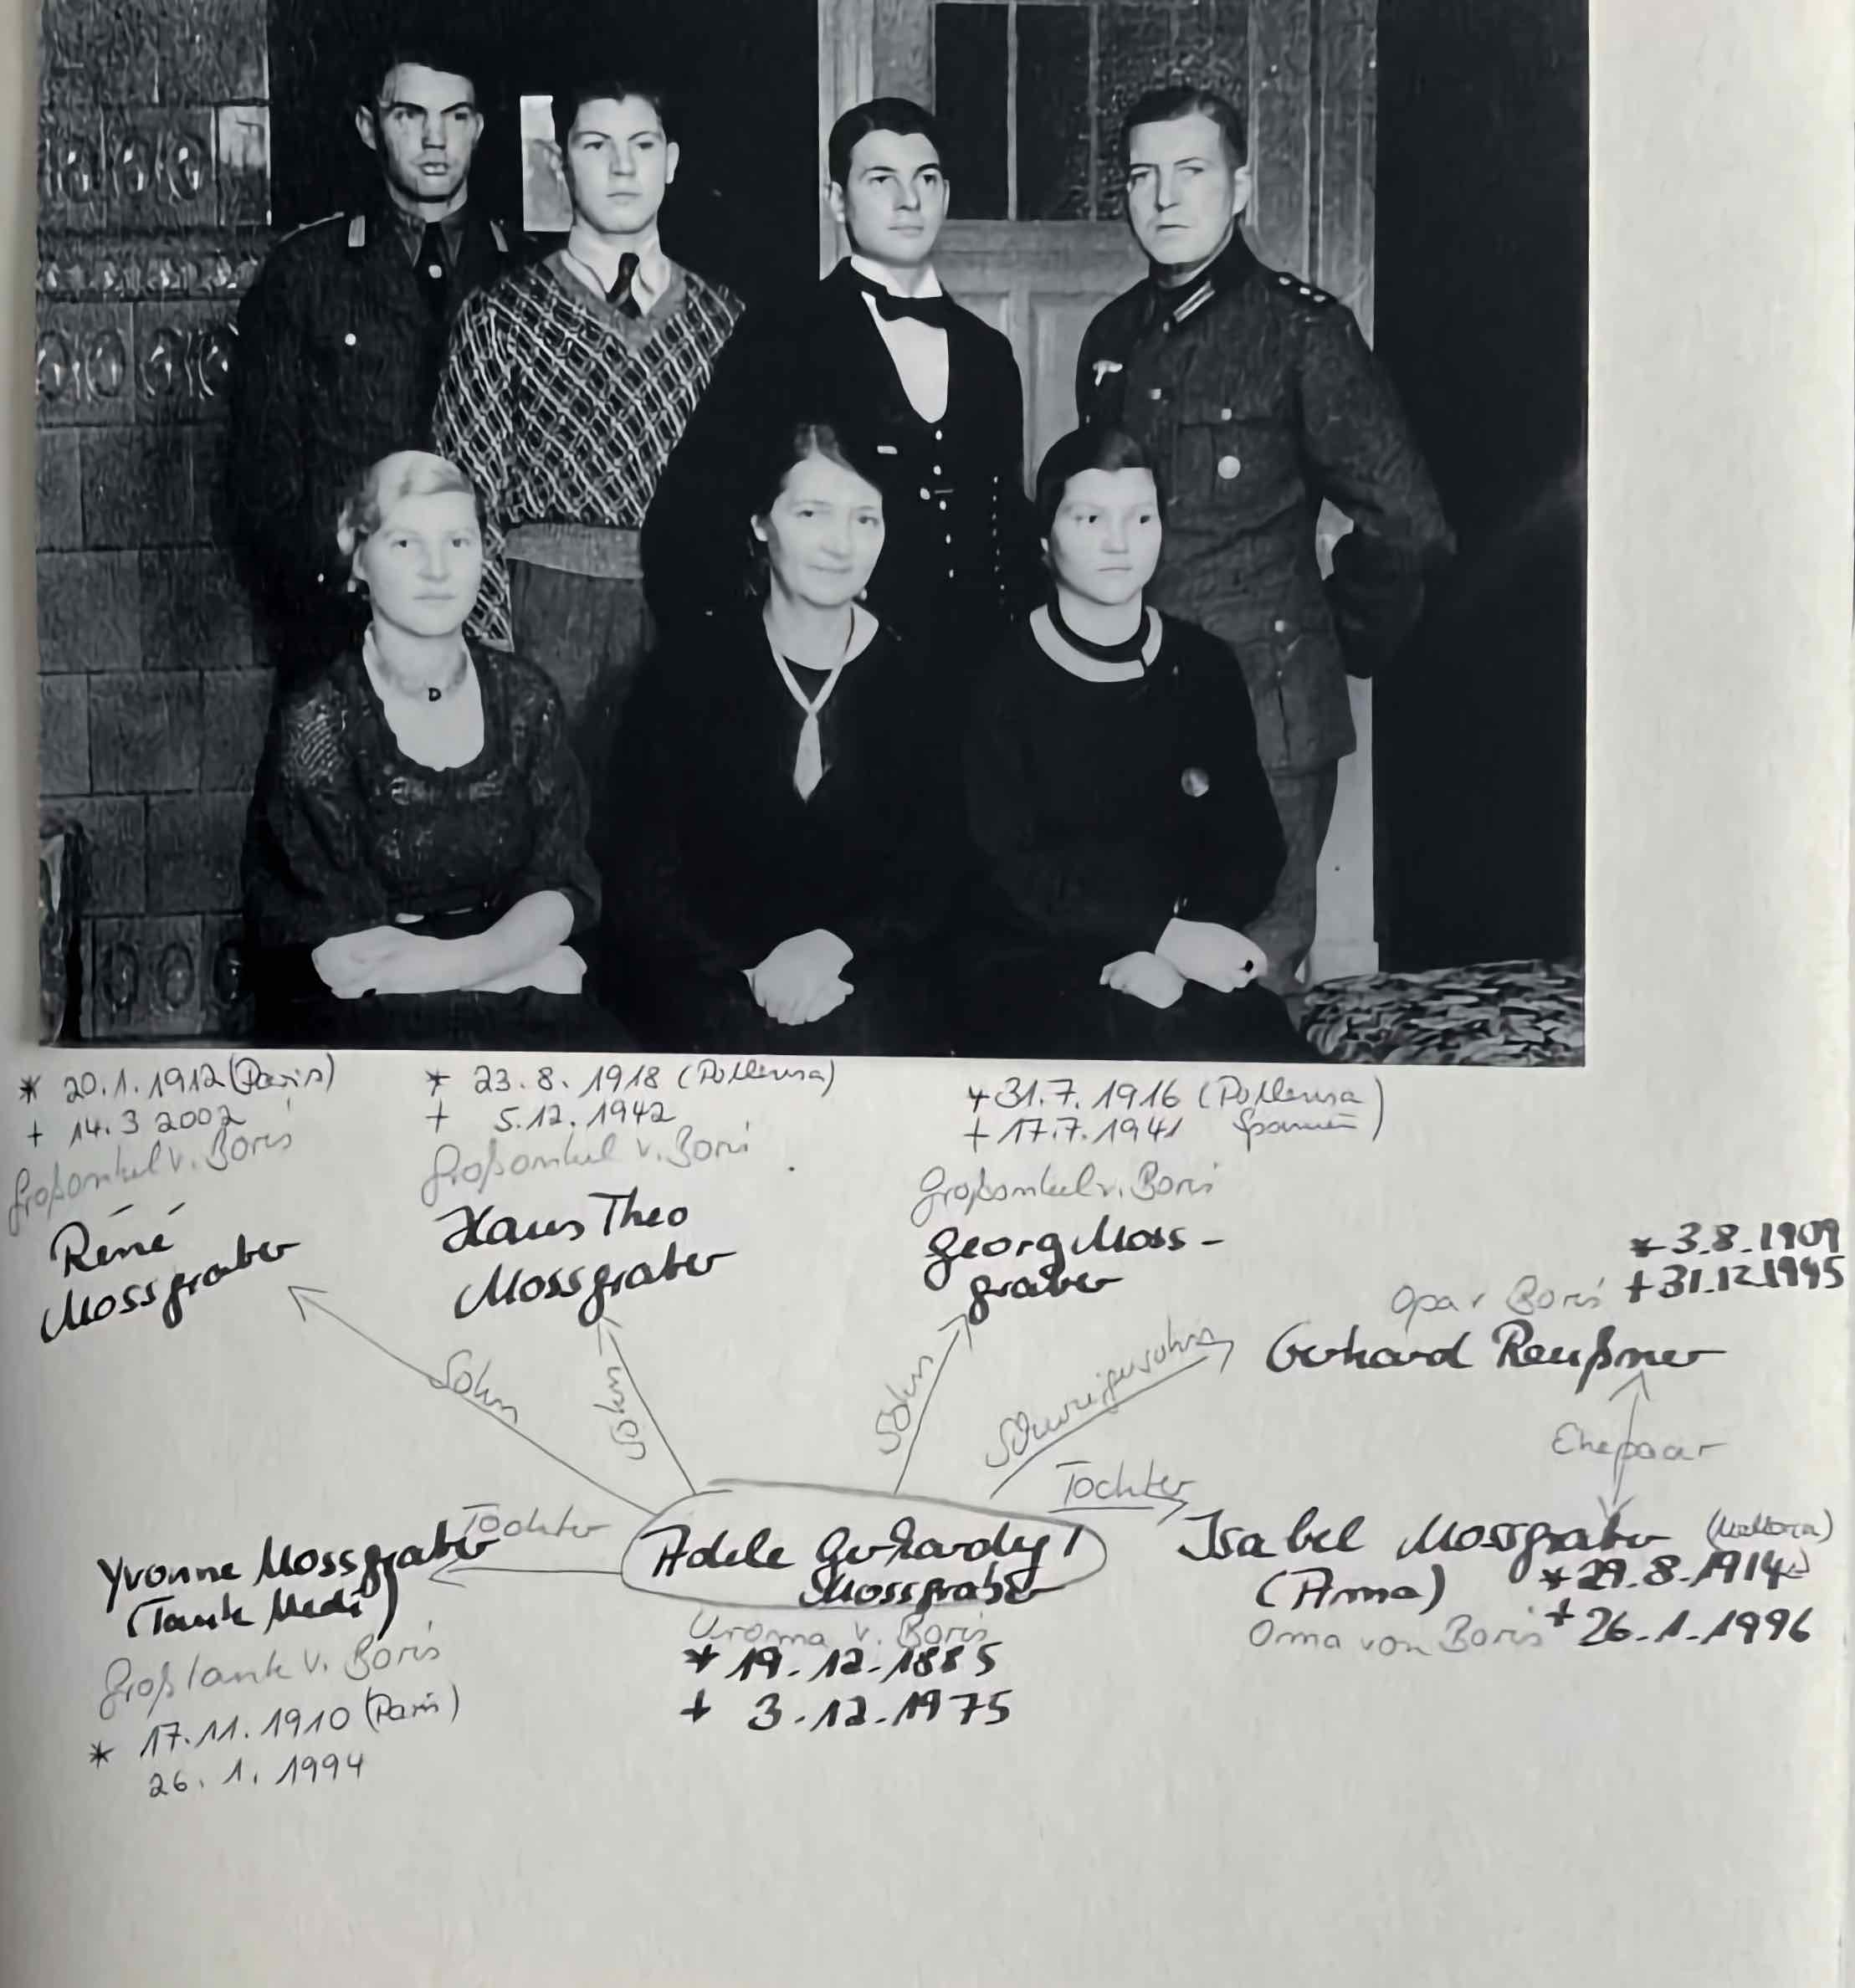 * 20.1.1912 (Paris)
+ 14.3 2002
Großonkel v. Boris
René
Mossgraber
* 23.8.1918 (Pollensa)
+ 5.12.1942
Großonkel v. Boris
Hans Theo
Mossgraber
* 31.7.1916 (Pollensa
+ 17.7.1941 Spanien)
Großonkel v. Boris
Georg Moss-
graber
* 3.8.1909
+ 31.12.1945
Opa v Boris
Gerhard Reußner
Sohn
Sohn
Sohn
Schwiegersohn
Ehepaar
Tochter
Tochter
Yvonne Mossgraber
(Tante Medi)
Großtante v. Boris
* 17.11.1910 (Paris)
26.1.1994
Adele Gerhardy /
Mossgraber
Uroma v. Boris
* 19.12.1885
+ 3.12.1975
Isabel Mossgraber (Mallorca)
* 29.8.1914
(Anna)
Oma von Boris + 26.1.1996